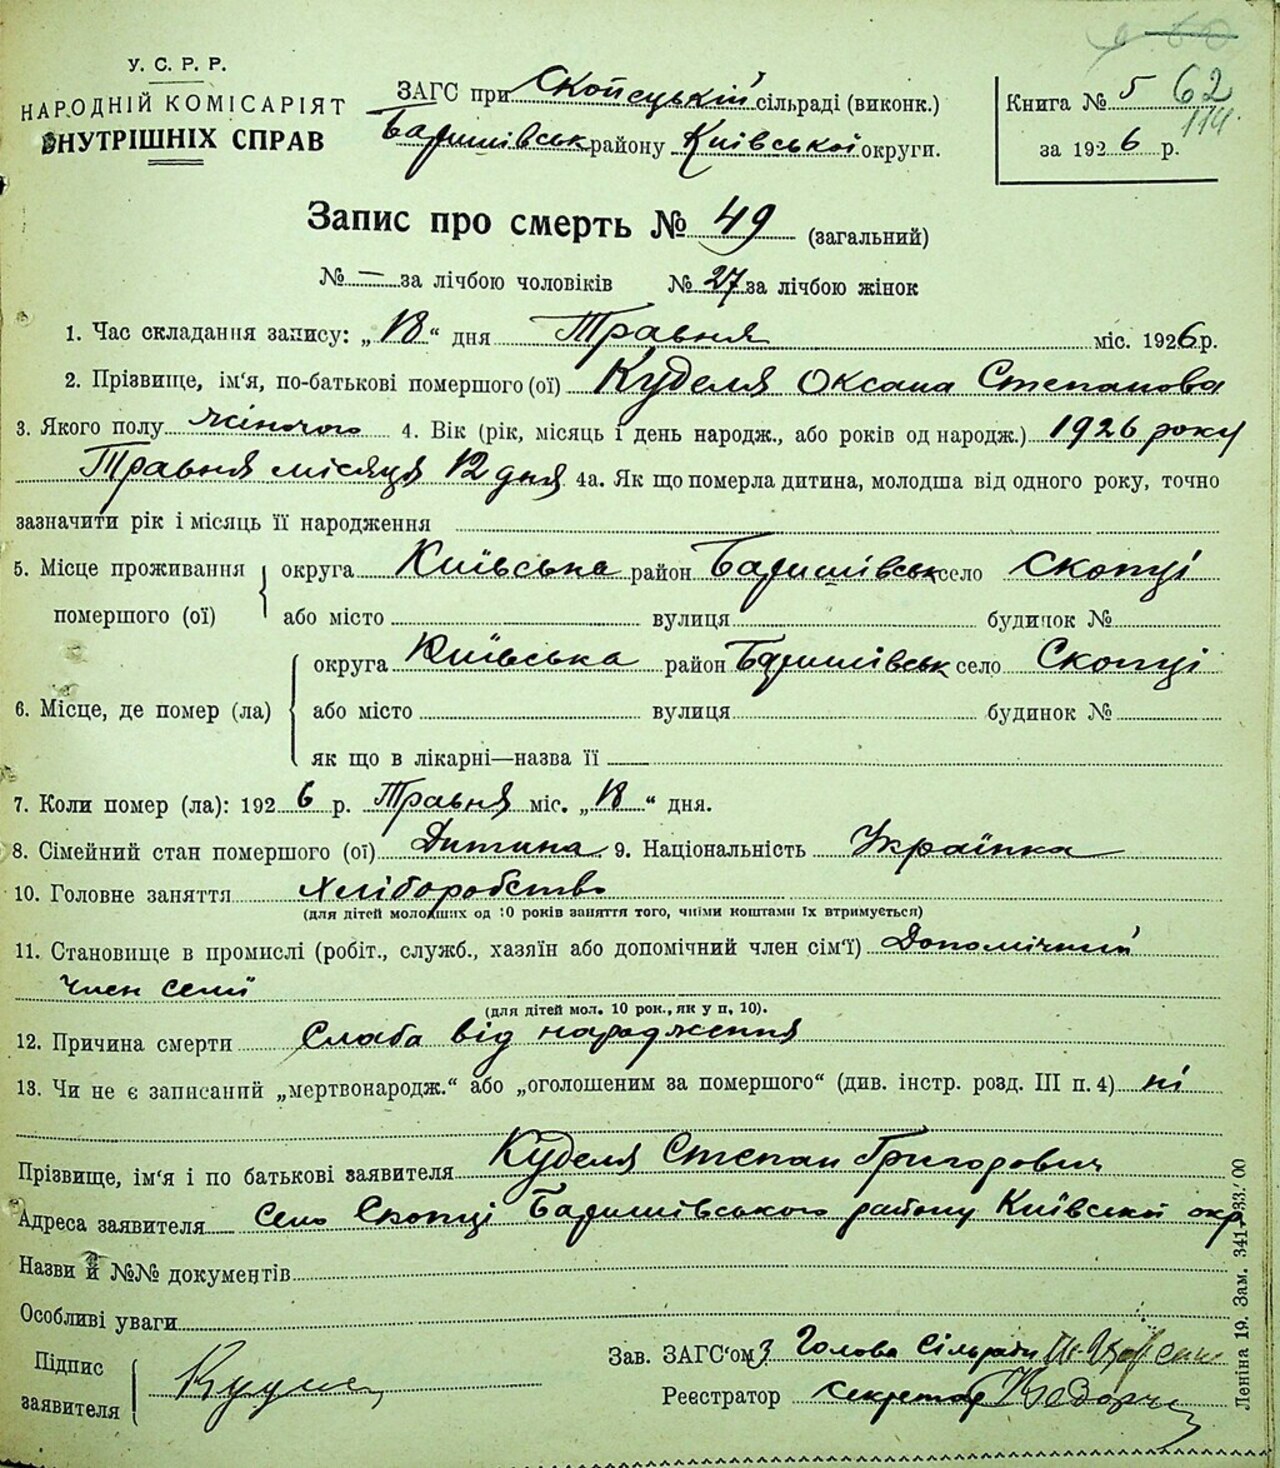 У. С. Р. Р.
НАРОДНІЙ КОМІСАРІЯТ
ВНУТРІШНІХ СПРАВ
ЗАГС при Скопецькій сільраді (виконк.)
Баришівськ району Київської округи.
Книга № 5 62
114
за 1926 р.
Запис про смерть № 49 (загальний)
№ — за лічбою чоловіків № 27 за лічбою жінок
1. Час складання запису: „18“ дня Травня міс. 1926 р.
2. Прізвище, ім‘я, по-батькові помершого (ої) Куделя Оксана Степанова
3. Якого полу жіночого 4. Вік (рік, місяць і день народж., або років од народж.) 1926 року
Травня місяця 12 дня 4а. Як що померла дитина, молодша від одного року, точно
зазначити рік і місяць її народження
5. Місце проживання помершого (ої) округа Київська район Баришівськ село Скопці
або місто вулиця будинок №
6. Місце, де помер (ла) округа Київська район Баришівськ село Скопці
або місто вулиця будинок №
як що в лікарні—назва її
7. Коли помер (ла): 1926 р. Травня міс. „18“ дня.
8. Сімейний стан помершого (ої) Дитина 9. Національність Українка
10. Головне заняття Хліборобство
(для дітей молодших од 10 років заняття того, чиїми коштами їх втримується)
11. Становище в промислі (робіт., служб., хазяїн або допомічний член сім‘ї) Допомічний
член семї
(для дітей мол. 10 рок., як у п. 10).
12. Причина смерти Слаба від народження
13. Чи не є записаний „мертвонародж.“ або „оголошеним за помершого“ (див. інстр. розд. III п. 4) ні
Прізвище, ім‘я і по батькові заявителя Куделя Степан Григорович
Адреса заявителя Село Скопці Баришівського району Київської окр
Назви й №№ документів
Особливі уваги
Підпис заявителя
Зав. ЗАГС‘ом З Голова Сільради
Реєстратор секретар
Леніна 19. Зам. 341—33.